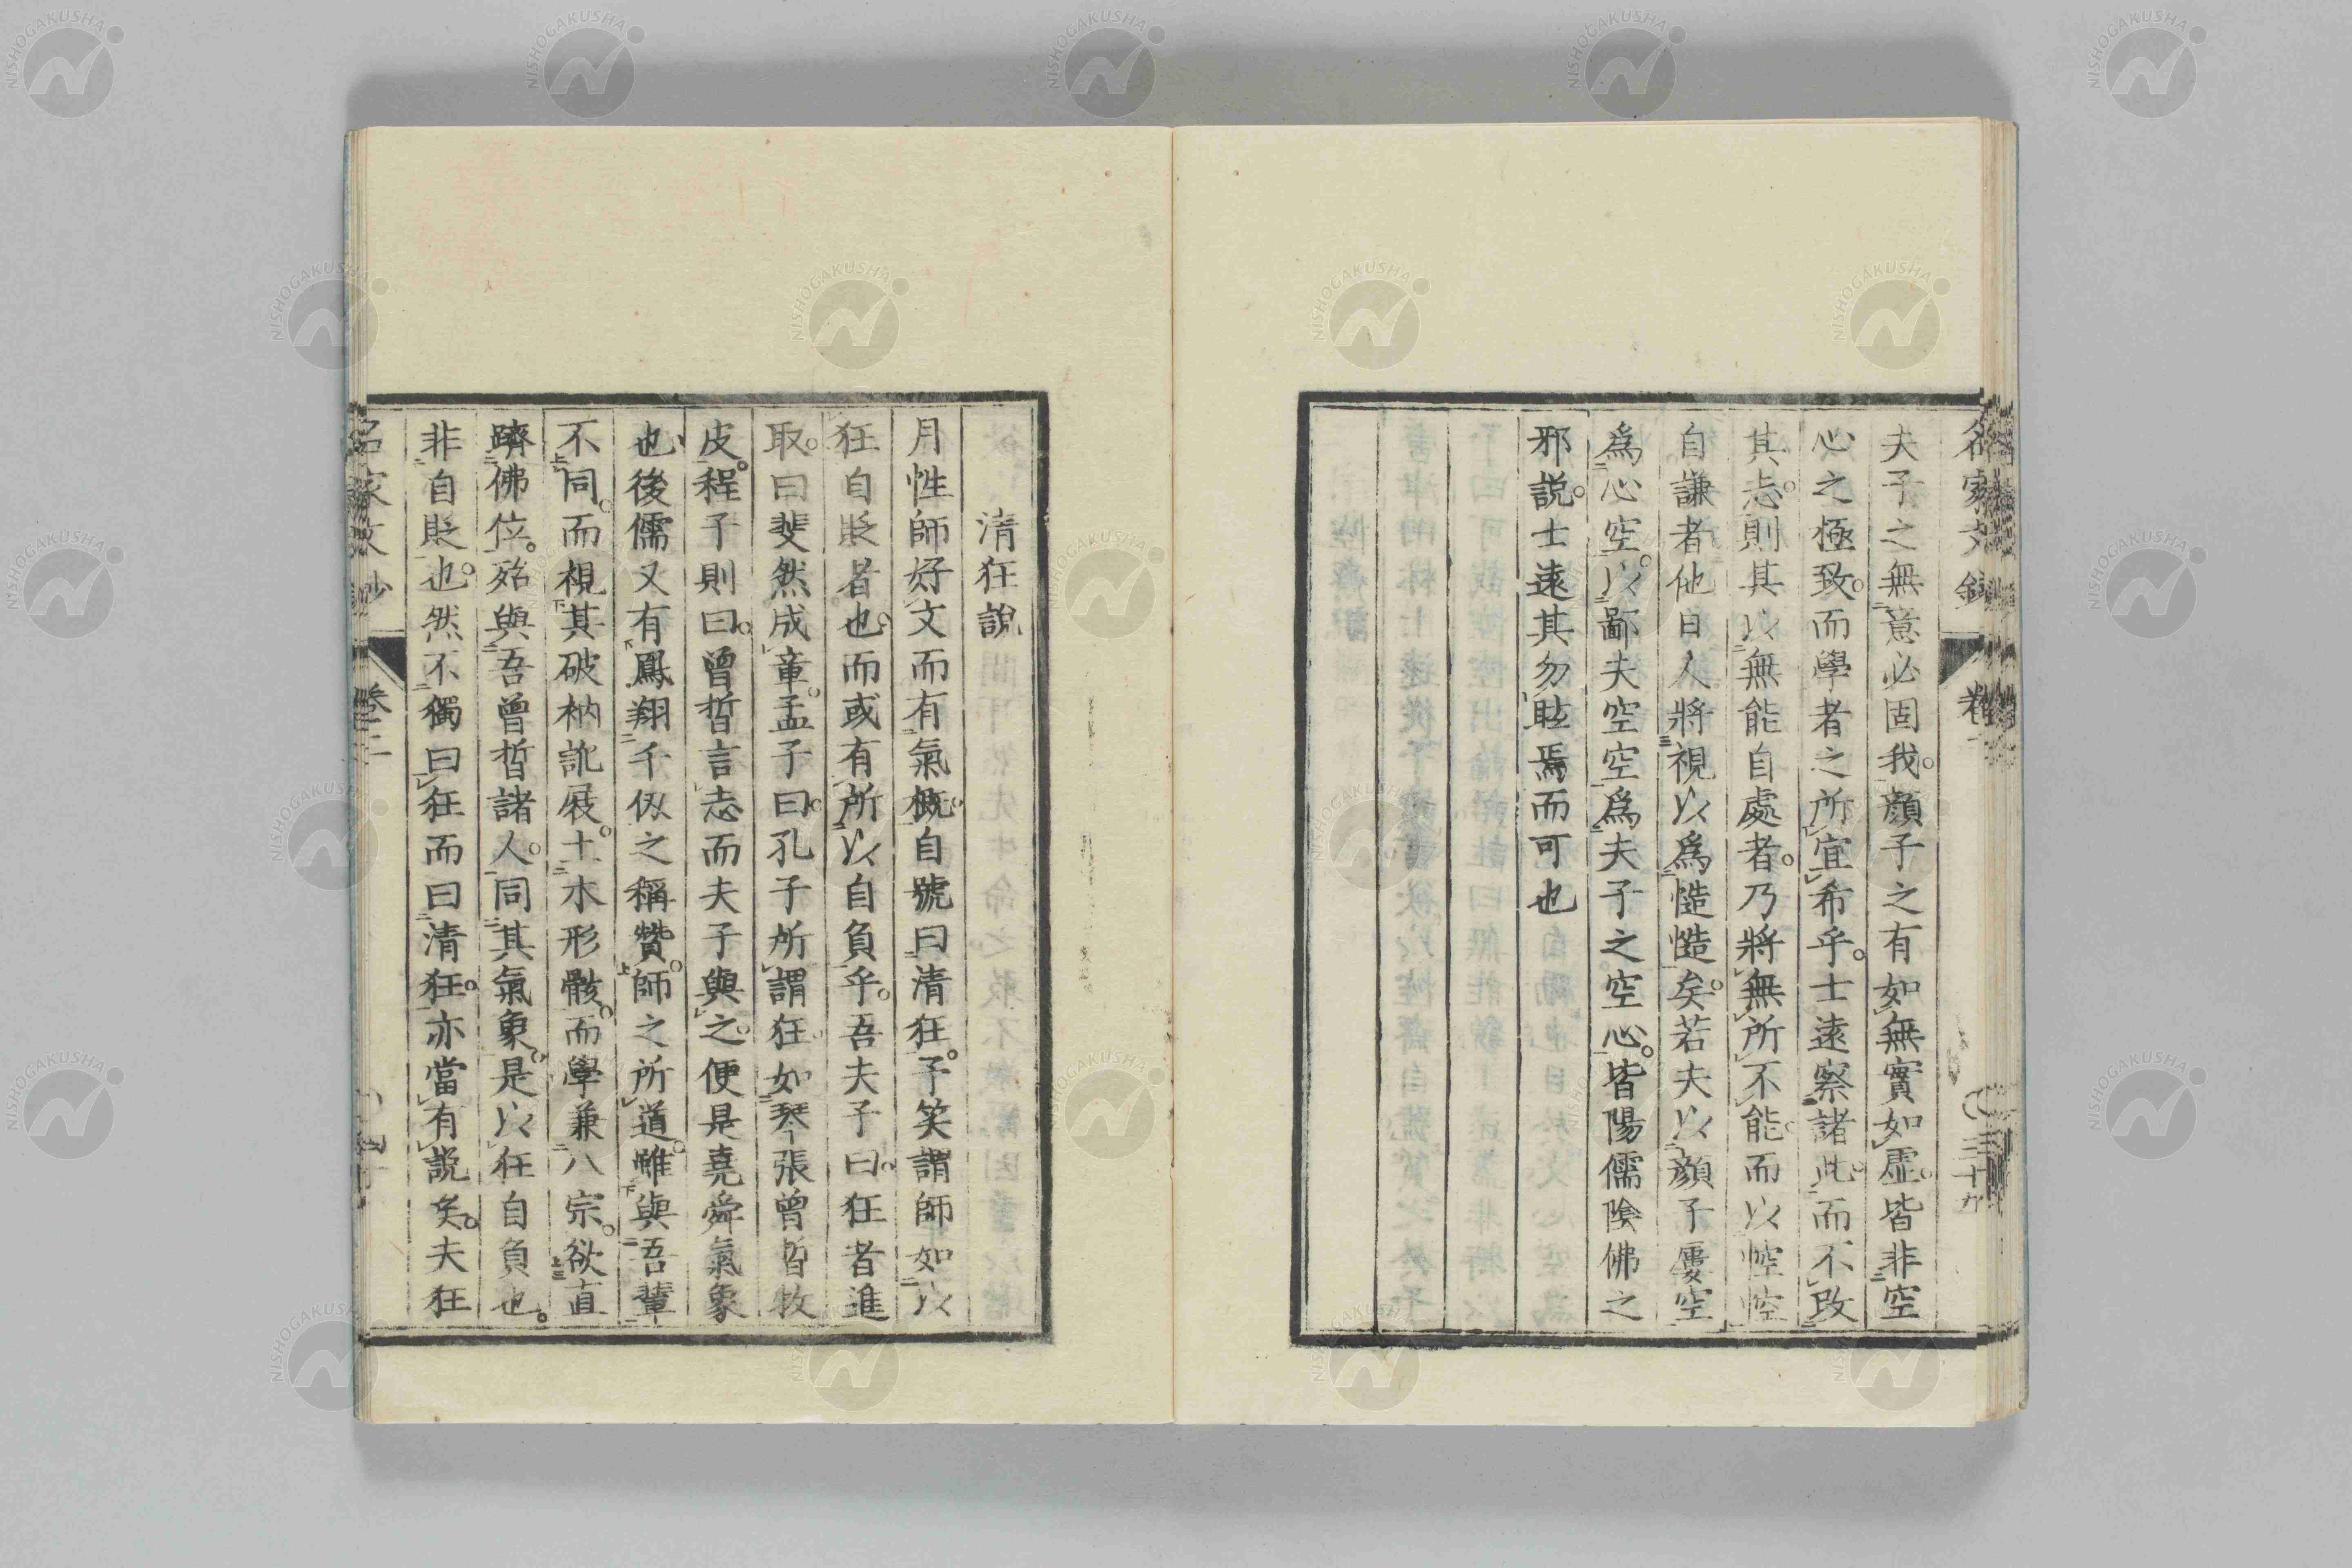 夫子之無意必固我。顔子之有如無實如虛。皆非空
心之極致。而學者之所宜希乎。士遠察諸此。而不改
其志。則其以無能自處者。乃將無所不能。而以悾悾
自謙者他日人將視以爲慥慥矣。若夫以顔子屢空
爲心空。以鄙夫空空爲夫子之空心。皆陽儒陰佛之
邪說。士遠其勿眩焉而可也
三十九
清狂說
月性師好文而有氣概。自號曰清狂。予笑謂師如以
狂自貶者也。而或有所以自負乎。吾夫子曰。狂者進
取。曰斐然成章。孟子曰。孔子所謂狂。如琴張曾晳牧
皮。程子則曰。曾晳言志而夫子與之。便是堯舜氣象
也。後儒又有鳳翔千仭之稱贊。師之所道。雖與吾輩
不同。而視其破衲訛屐。土木形骸。而學兼八宗。欲直
躋佛位。殆與吾曾晳諸人。同其氣象。是以狂自負也。
非自貶也。然不獨曰狂而曰清狂。亦當有說矣。夫狂
名家文鈔
卷二
NISHOGAKUSHA